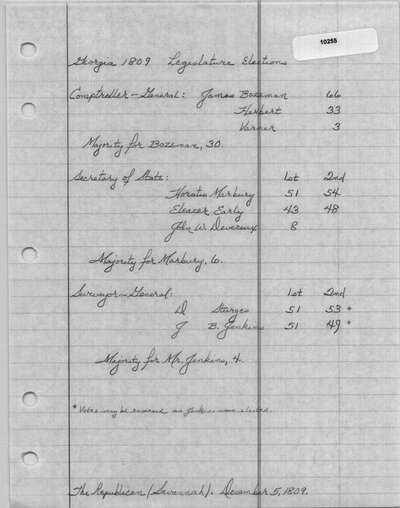 10255
Georgia 1809 Legislature Elections
Comptroller-General: James Bozeman 66
Herbert 33
Varner 3
Majority for Bozeman, 30.
Secretary of State: 1st 2nd
Horatio Marbury 51 54
Eleazer Early 43 48
John W. Devereux 8
Majority for Marbury, 6.
Surveyor-General: 1st 2nd
D Sturges 51 53 *
J B. Jenkins 51 49 *
Majority for Mr. Jenkins, 4.
* Votes may be reversed as Jenkins was elected.
The Republican (Savannah). December 5, 1809.